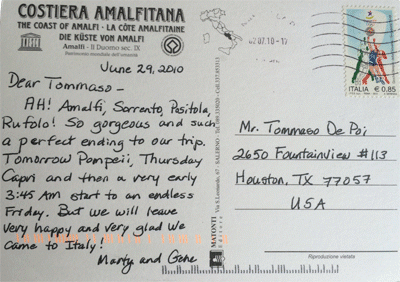 COSTIERA AMALFITANA
THE COAST OF AMALFI - LA CÔTE AMALFITAINE
DIE KÜSTE VON AMALFI
Amalfi - Il Duomo sec. IX
Patrimonio mondiale dell'umanità
June 29, 2010
Dear Tommaso -
AH! Amalfi, Sorrento, Positola,
Rufolo! So gorgeous and such
a perfect ending to our trip.
Tomorrow Pompeii, Thursday
Capri and then a very early
3:45 AM start to an endless
Friday. But we will leave
very happy and very glad we
came to Italy!
Marty and Gene
MATONTI
editore
02.07.10-17
ITALIA € 0,85
Mr. Tommaso De Poi
2650 Fountainview #113
Houston, TX 77057
USA
Riproduzione vietata